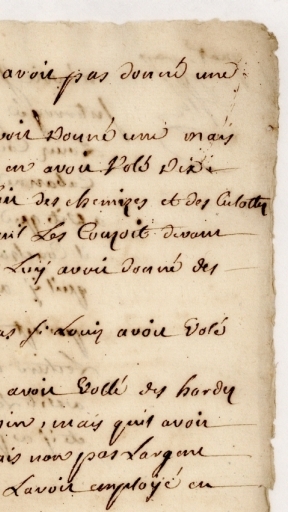 avoit pas donné une
voit donné une mais
en avoit volé dix
des chemizes et des Culotte
Les Cousoit devant
Luy avoit donné des
Louis avoit volé
avoit Vollé des hardes
mais quil avoit
ais non pas Largent
Lavoit employé en